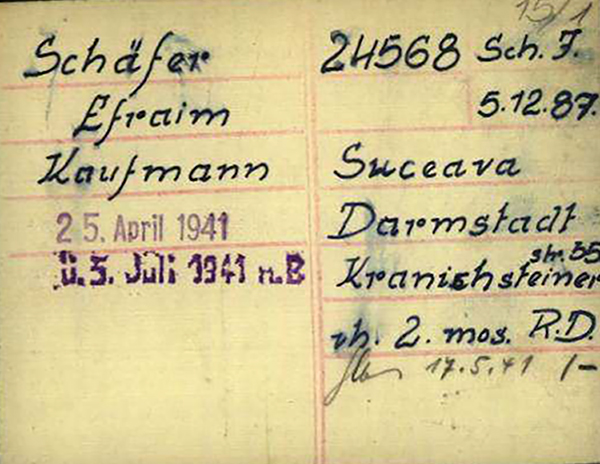 15/1
Schäfer
Efraim
Kaufmann
25. April 1941
0.5. Juli 1941 n.B
24568 Sch. J.
5.12.87.
Suceava
Darmstadt
str. 55
Kranichsteiner
vh. 2. mos. R.D.
17.5.41 1-